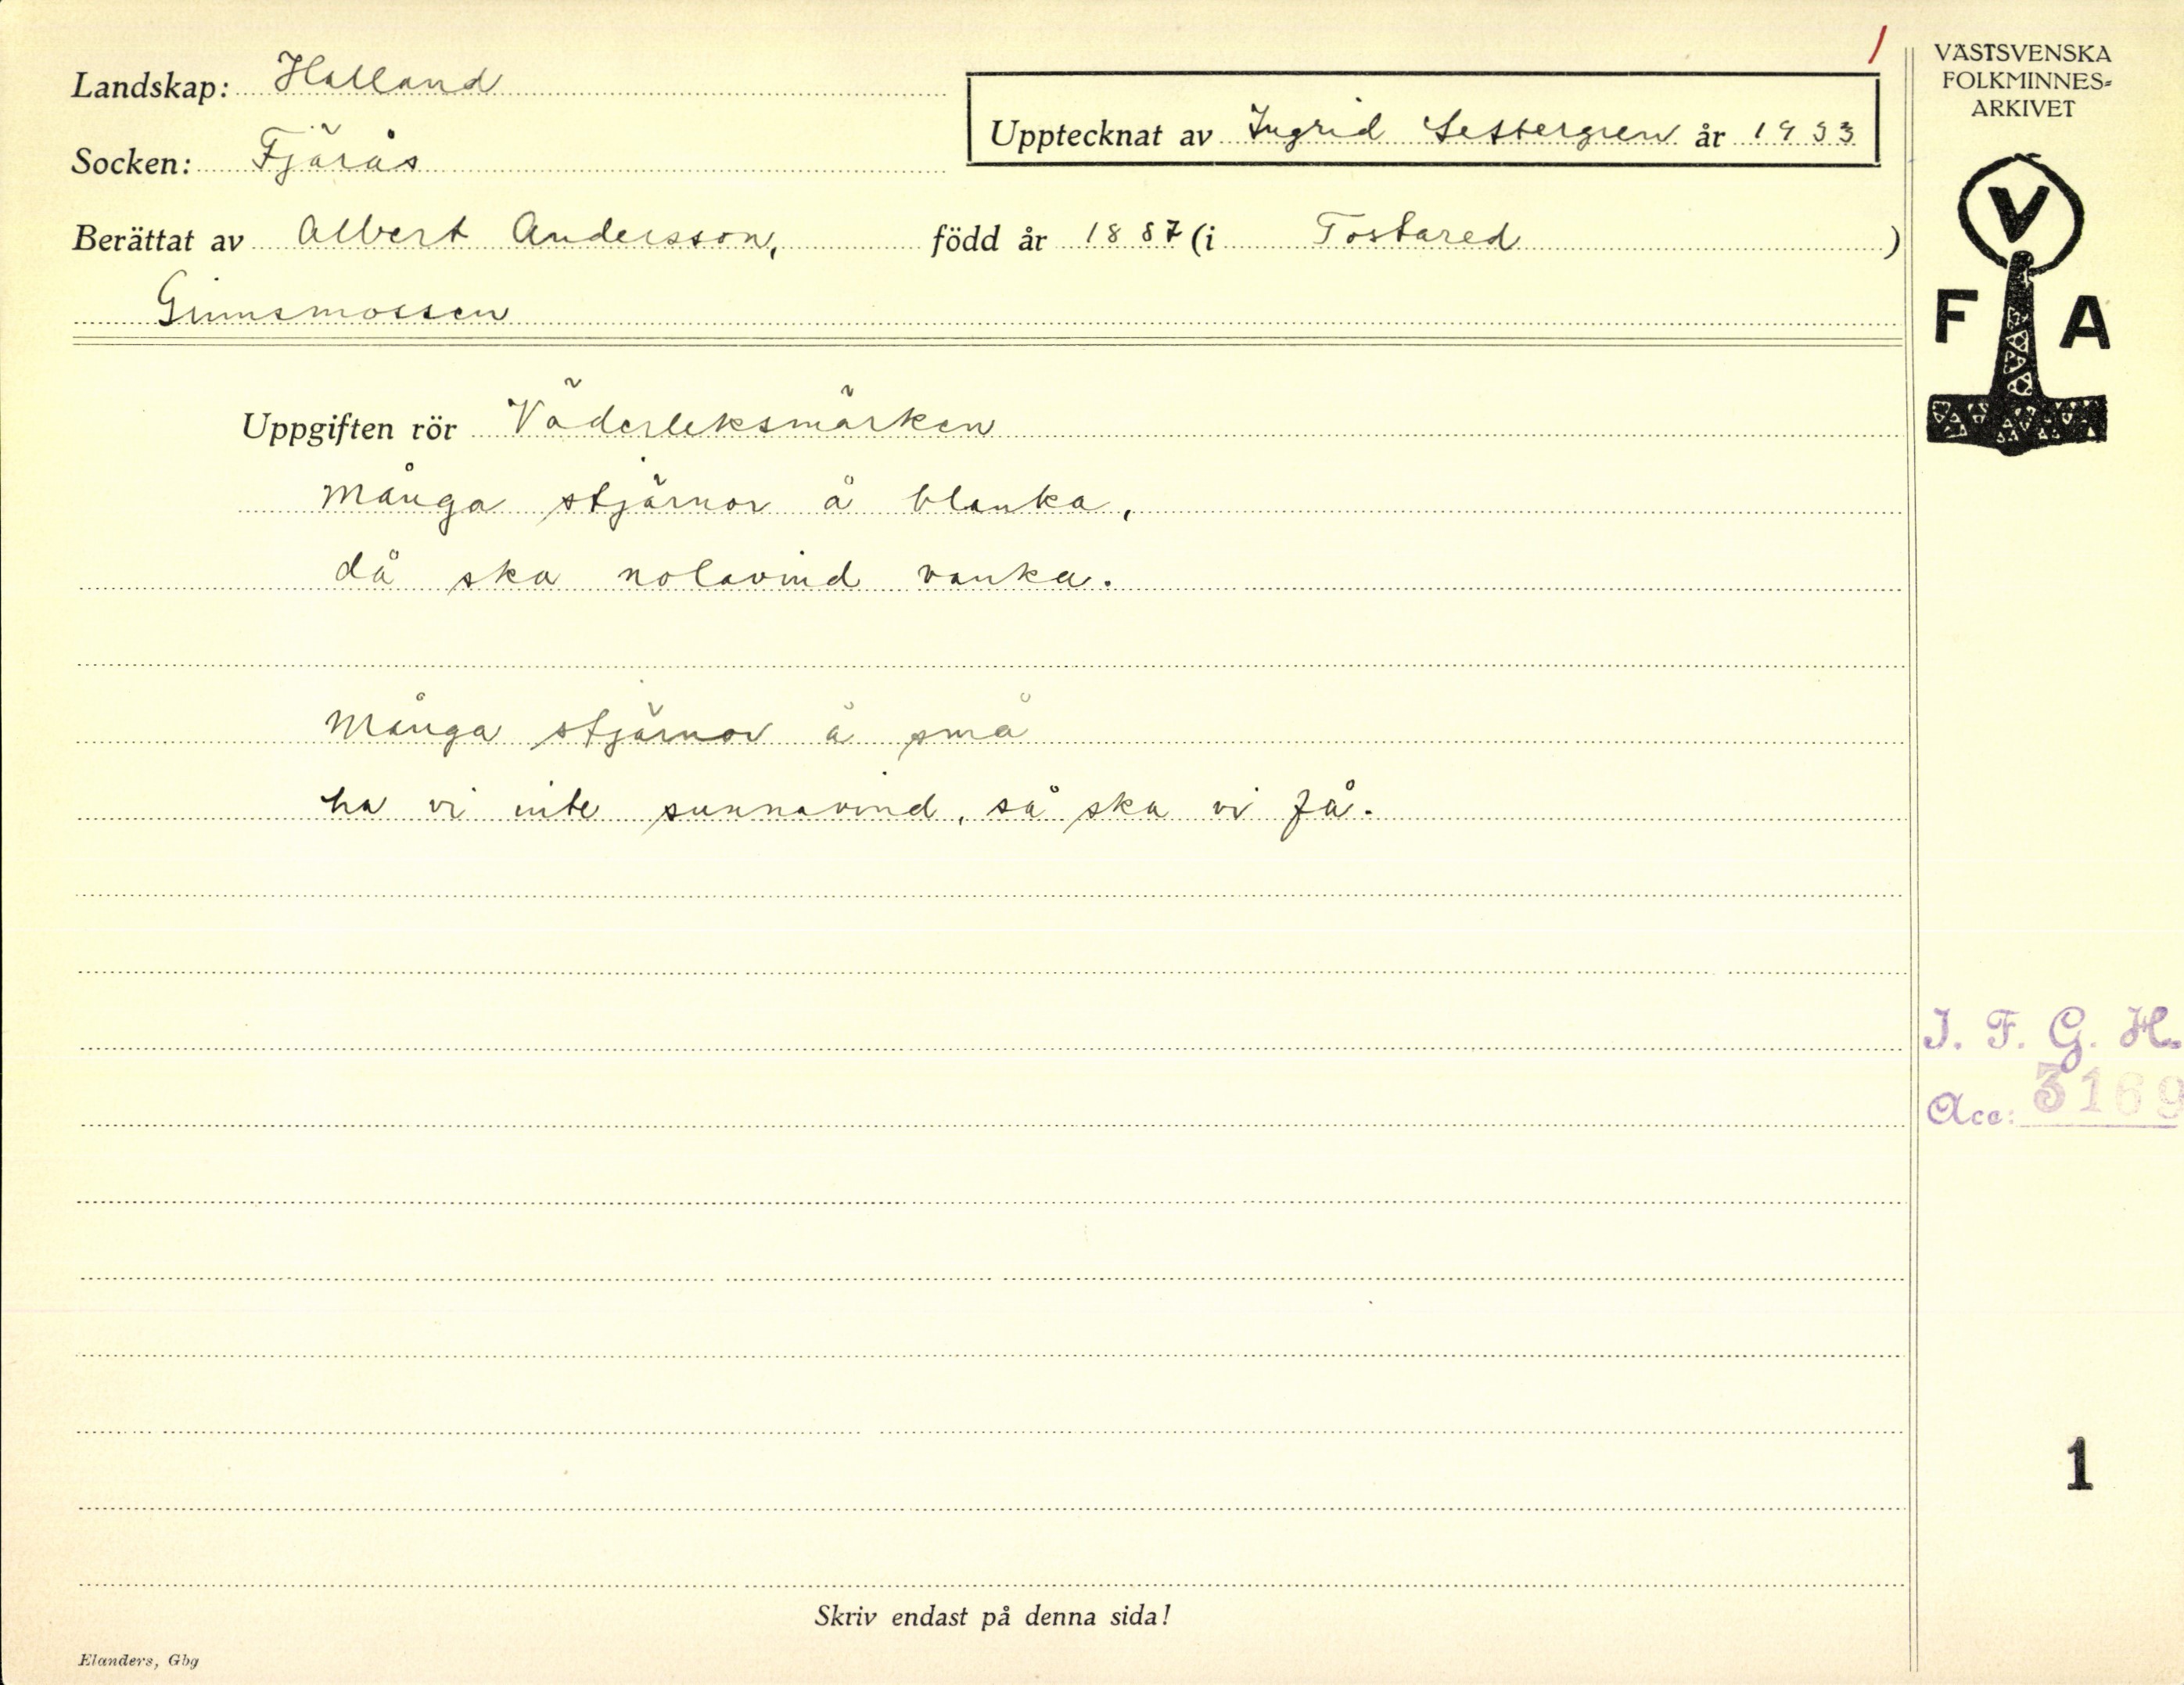 1
Landskap: Halland
Upptecknat av Ingrid Settergren år 1933
Socken: Fjärås
Berättat av Albert Andersson, född år 1887 (i Tostared)
VÄSTSVENSKA
FOLKMINNES-
ARKIVET
V
F A
Uppgiften rör Väderleksmärken
Många stjärnor å blanka,
då ska nolavind vanka.
Många stjärnor å små
ha vi inte sunnavind, så ska vi få.
I. F. G. H.
Acc: 3169
1
Skriv endast på denna sida!
Elanders, Gbg